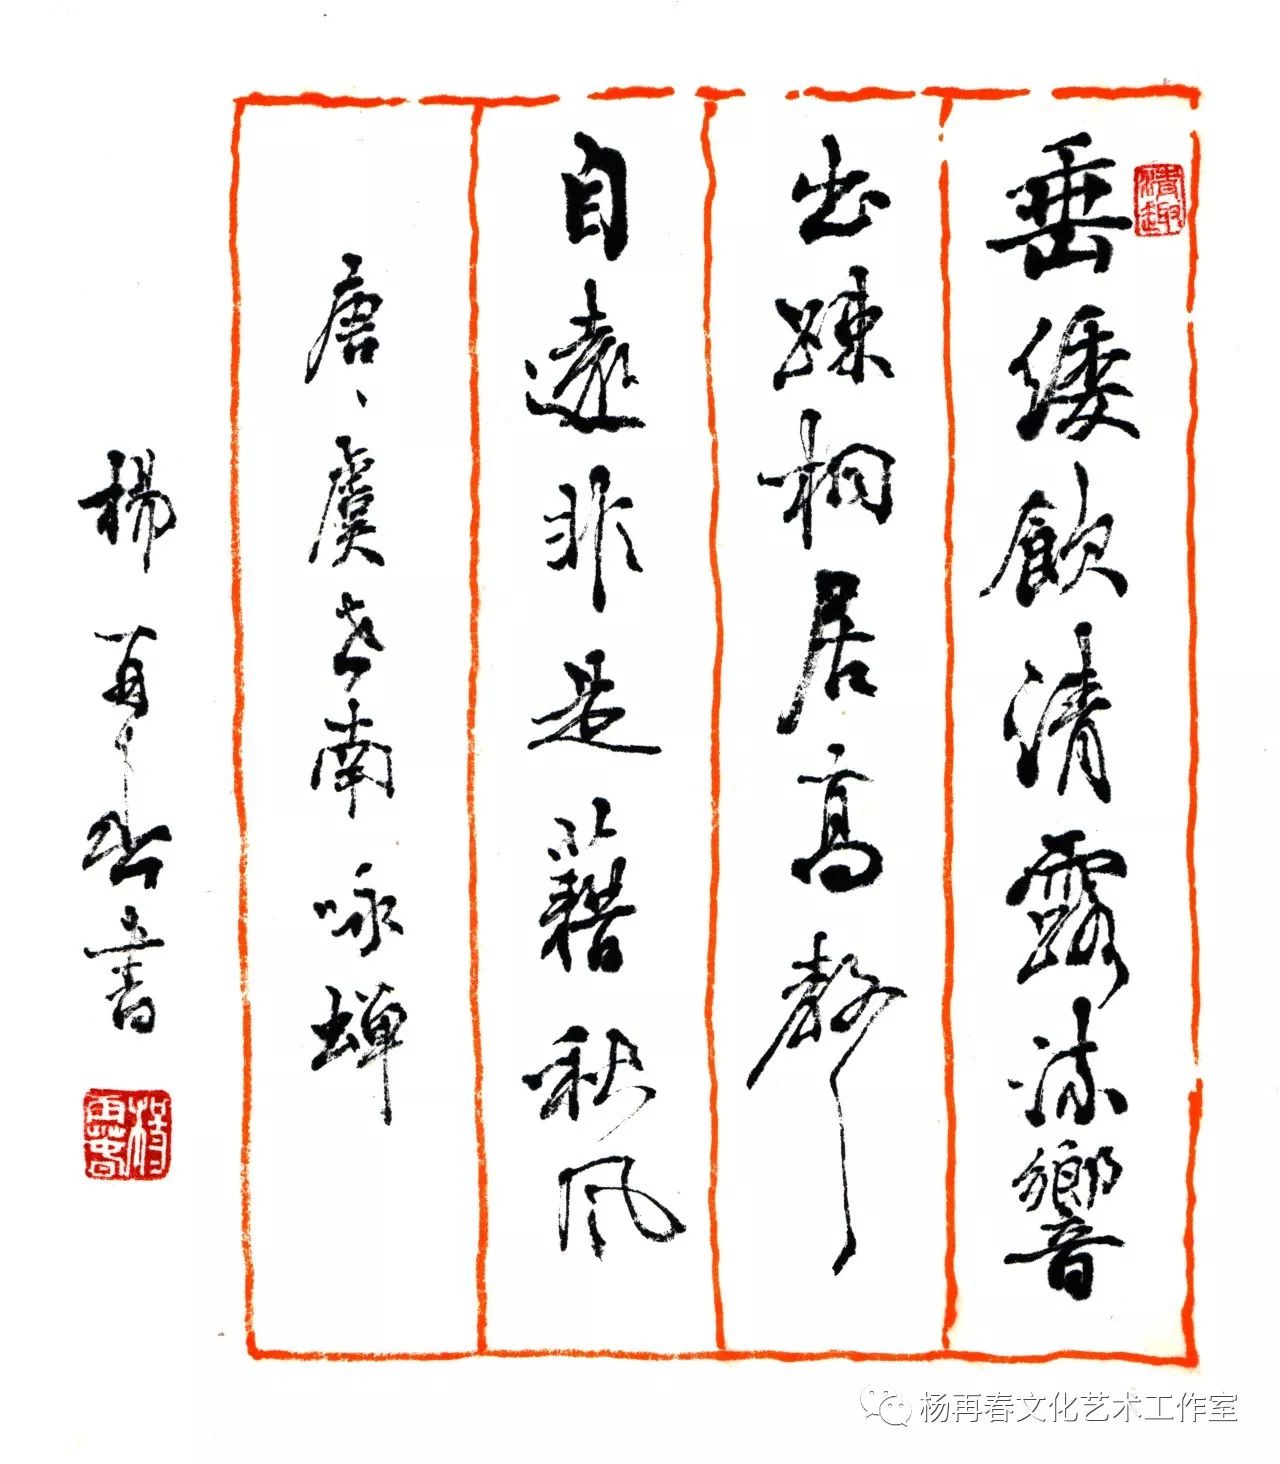 垂緌飲清露流響
出疎桐居高聲
自遠非是藉秋風
唐、虞世南咏蟬
楊再春書
清趣
楊再春
杨再春文化艺术工作室